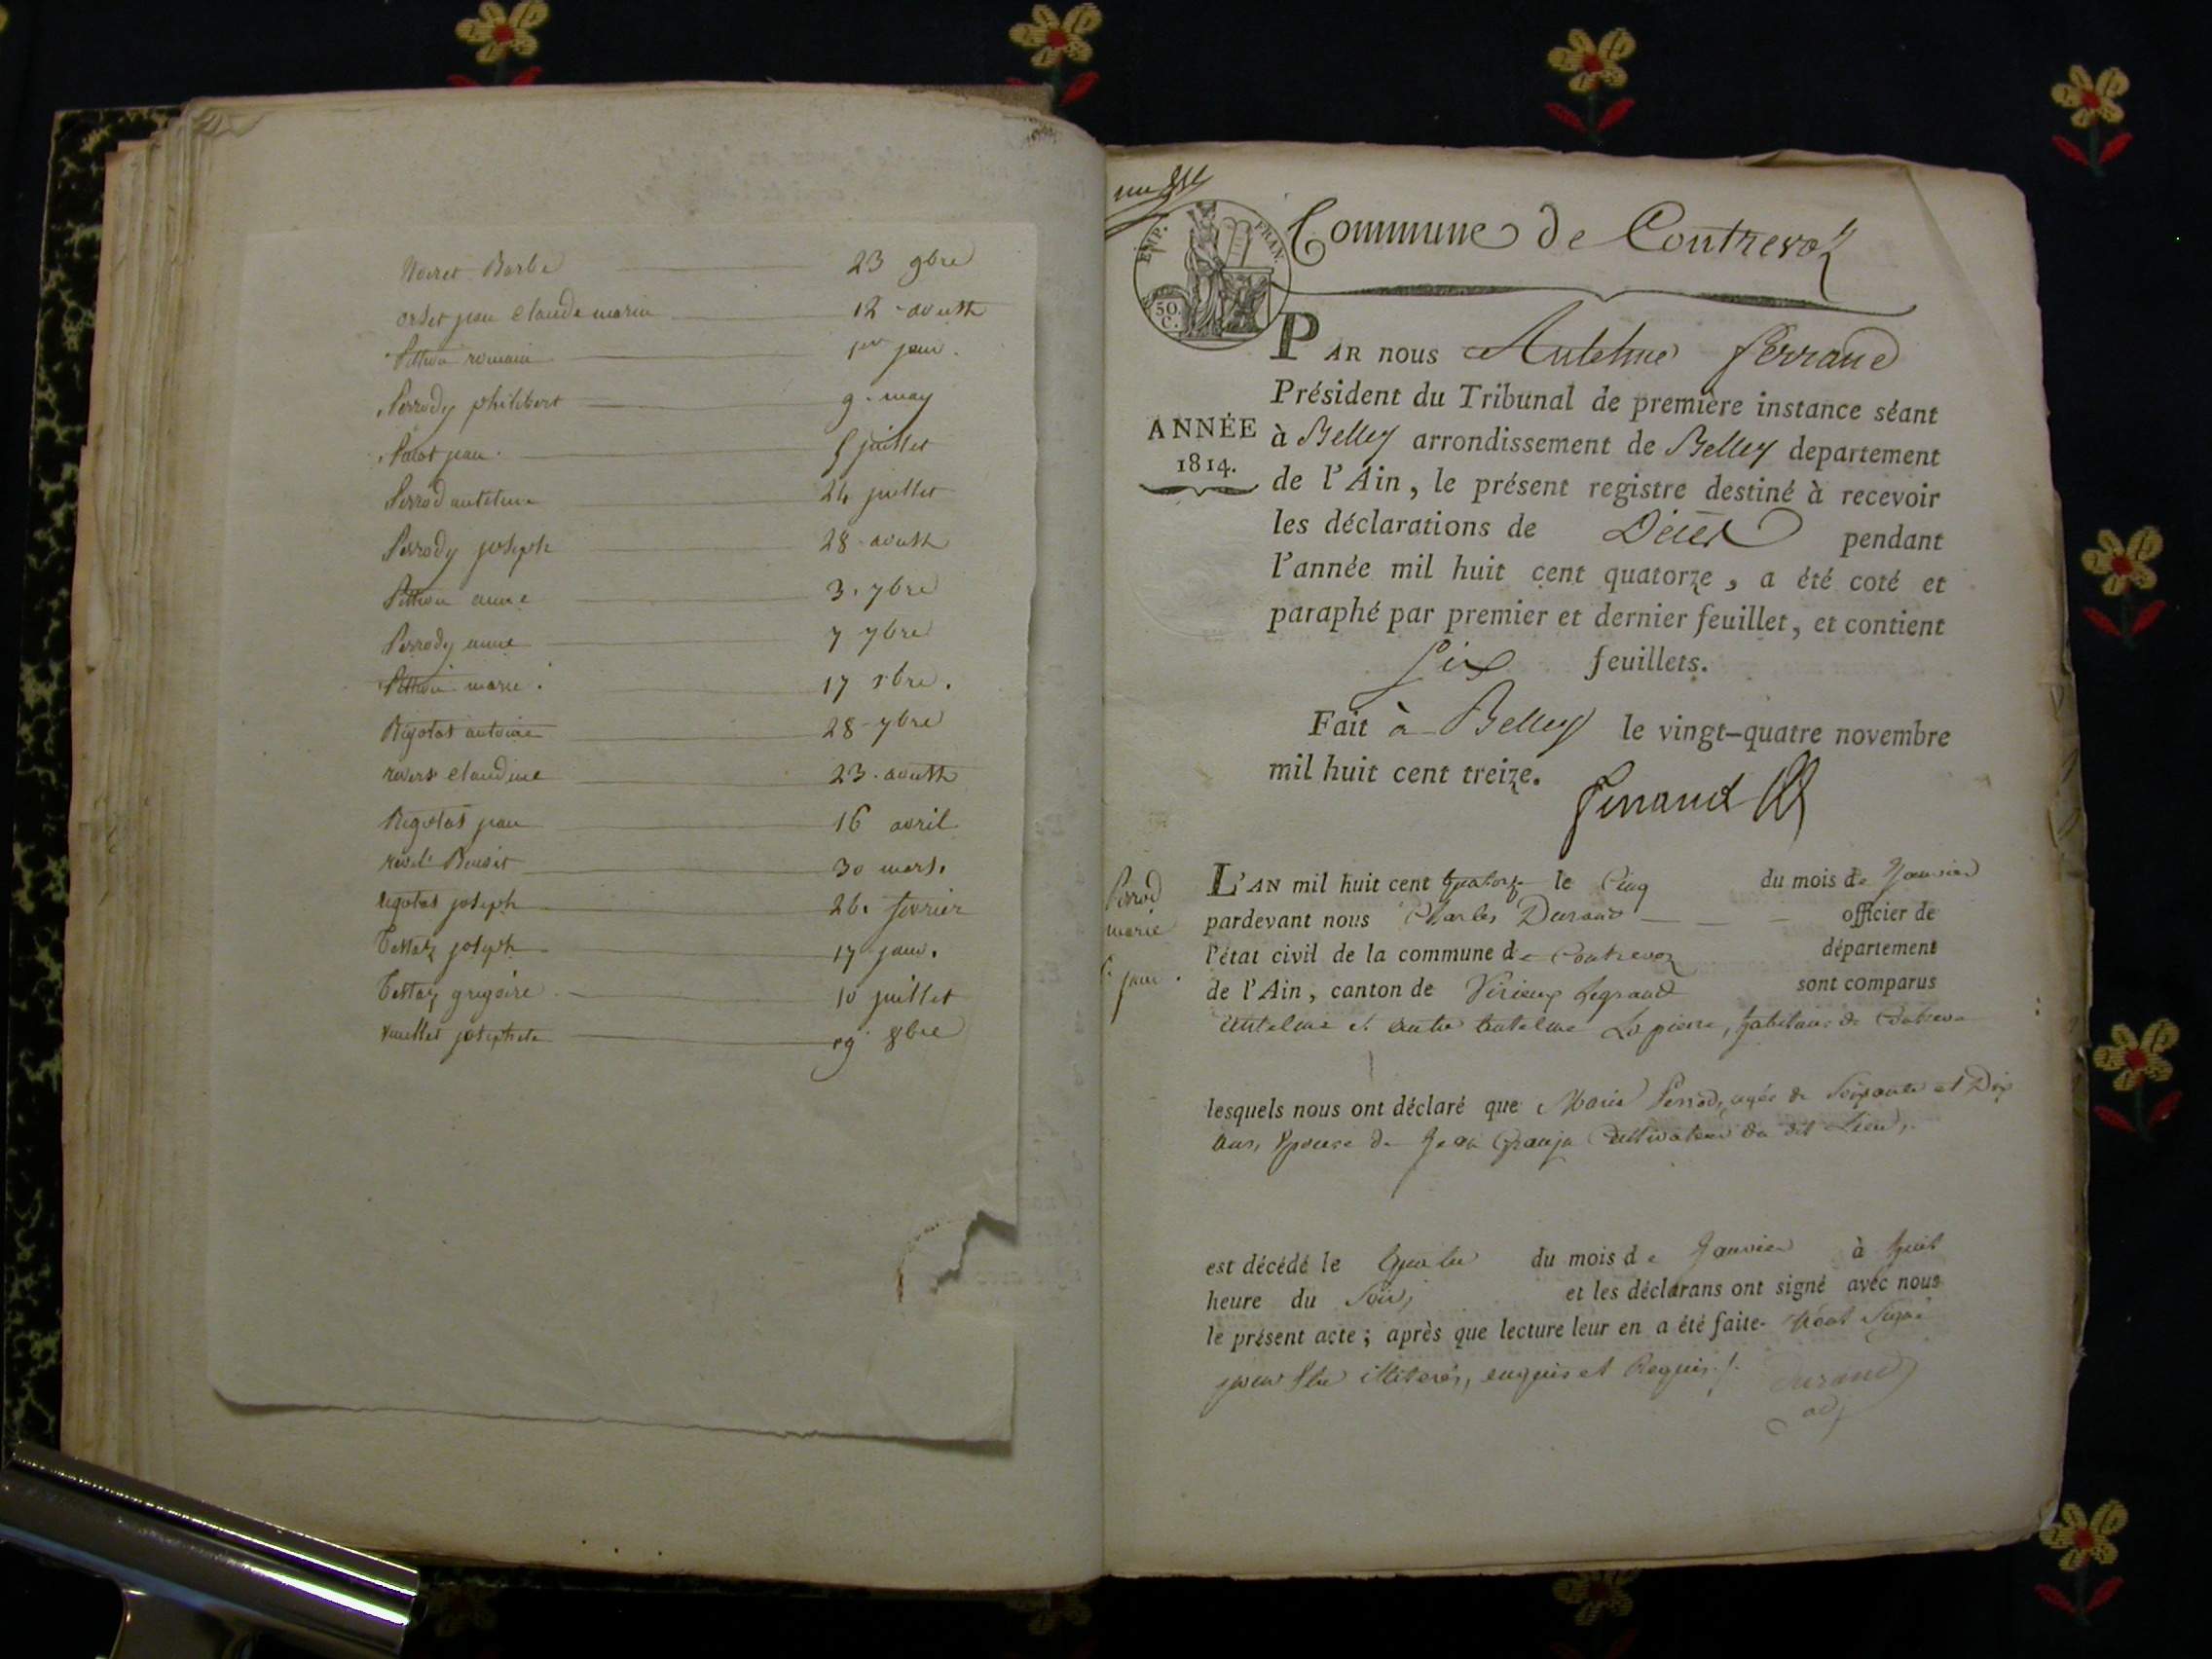 Noiret Barbe 23 9bre
orset jean Claude marin 12 aoust
Pithon romain 1er janv.
Perrody philibert 9. may
Palot jean 5 juillet
Perrod antelme 24 juillet
Perrody joseph 28 aoust
Pithon anne 3. 7bre
Perrody anne 7 7bre
Pithon marie 17 xbre.
Rigotat antoine 28 7bre
Claudine 23. aoust
Rigotat jean 16 avril
Benoit 30 mars.
rigotat joseph 26. fevrier
Tettaz joseph 17 janv.
Tettaz gregoire 10 juillet
josephete 19 8bre
EMP. FRAN.
50. C.
Commune de Contrevoz
PAR nous Antelme ferrand
Président du Tribunal de première instance séant
ANNÉE
1814.
à Belley arrondissement de Belley departement
de l'Ain, le présent registre destiné à recevoir
les déclarations de Décès pendant
l'année mil huit cent quatorze, a été coté et
paraphé par premier et dernier feuillet, et contient
six feuillets.
Fait à Belley le vingt-quatre novembre
mil huit cent treize.
ferrand
Perrod
marie
janv.
L'AN mil huit cent quatorze le Cinq du mois de Janvier
pardevant nous Charles Durand officier de
l'état civil de la commune de Contrevoz département
de l'Ain, canton de Virieux legrand sont comparus
antelme et autre antelme Lapierre, habitans de Contrevoz
lesquels nous ont déclaré que Marie Perrod, agée de Soixante et Dix
ans, Epouse de Jean Granja Cultivateur du dit Lieu,
est décédé le quatre du mois de Janvier à huit
heure du Soir, et les déclarans ont signé avec nous
le présent acte; après que lecture leur en a été faite. n'ont Signé
pour être illiterés, enquis et Requis.
Durand
adj